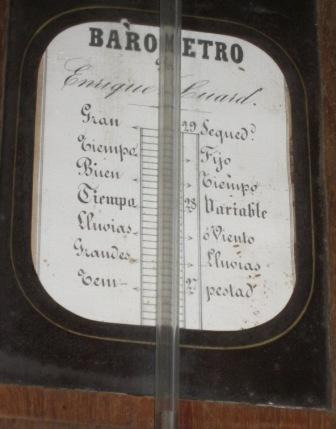 BAROMETRO
de
Enrique Luard.
Gran 29 Sequed.
Tiempo Fijo
Buen Tiempo
Tiempo 28 Variable
Lluvias ó Viento
Grandes Lluvias
Tem- pestad